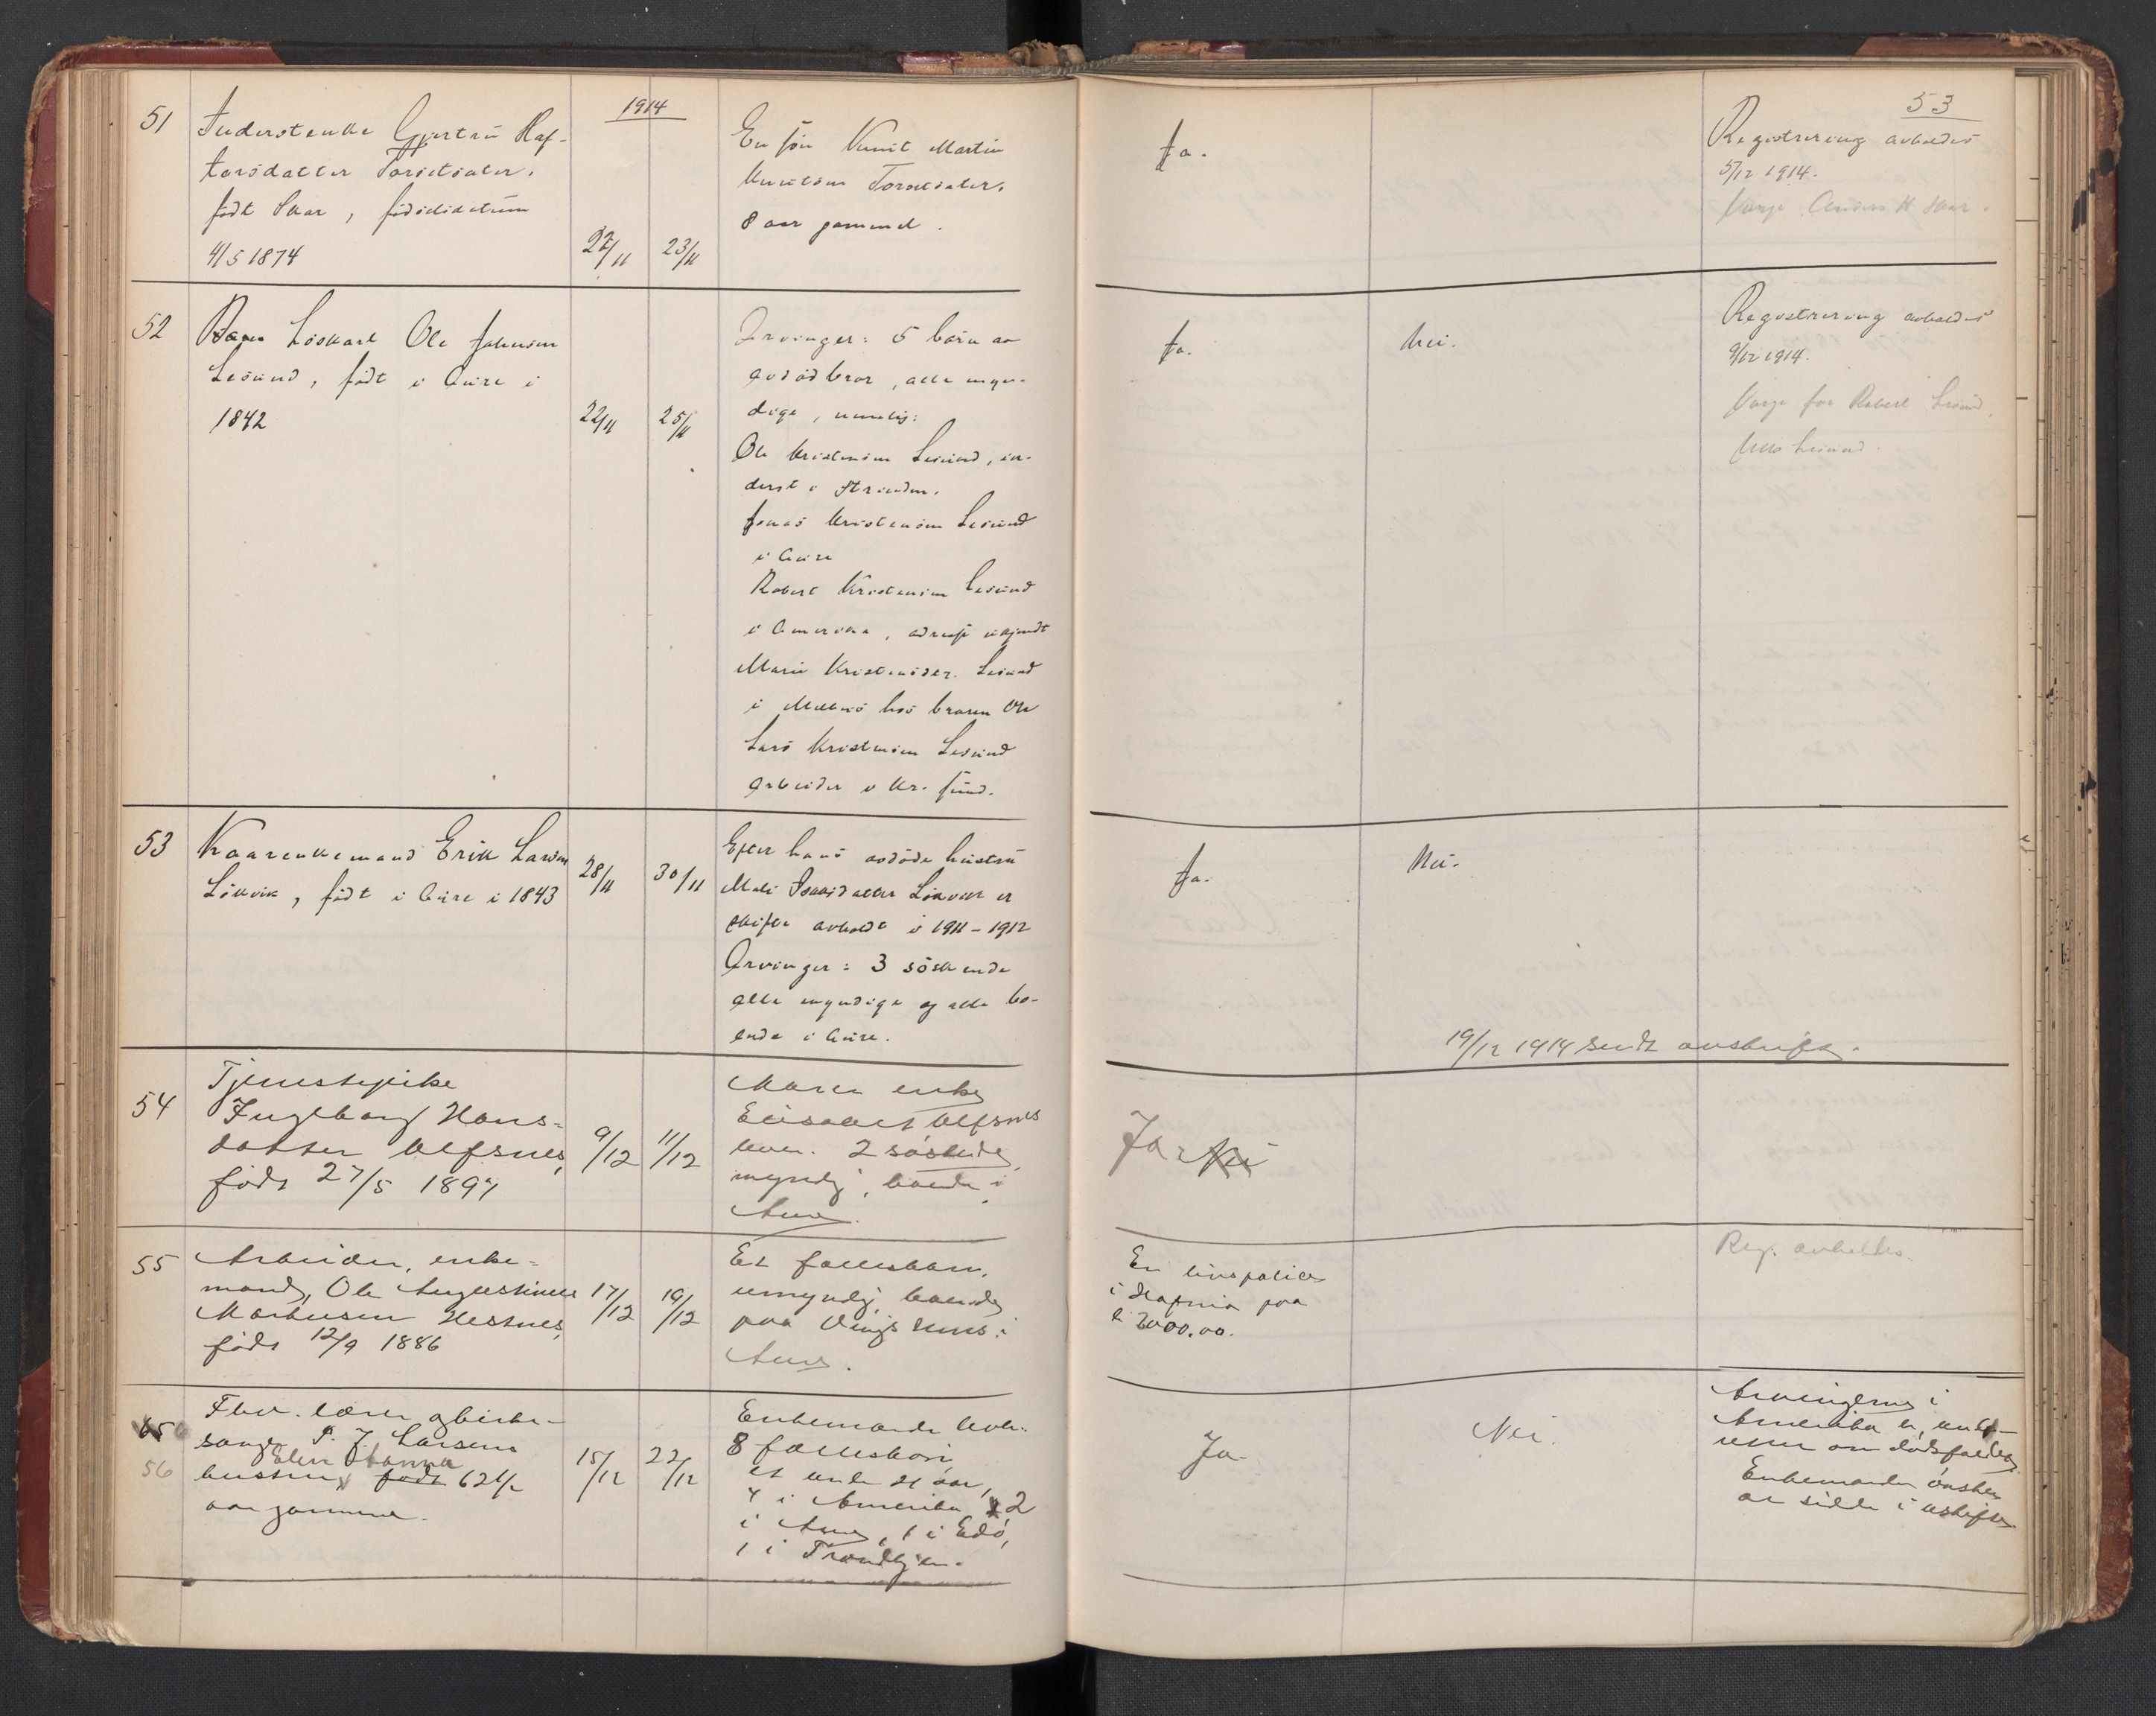 53
1914
51
Inderstenke Gjertrü Haf-
torsdatter Torsetsæter,
født Skar, födselsdatum
4/5 1874
22/11
23/11
En sön Knut Martin
Knutsen Torsetsæter,
8 aar gammel.
Ja.
Registrering avholdes
5/12 1914.
Værge Anders H Skar.
52
Löskarl Ole Johnsen
Lesund, födt i Aure i
1842
22/11
25/11
Arvinger: 5 börn av
avdöd bror, alle myn-
dige, nemlig:
Ole Kristensen Lesund, in-
derst i Strinden.
Jonas Kristensen Lesund
i Aure
Robert Kristensen Lesund
i Amerika, adresse ukjendt
Marie Kristensdtr. Lesund
i hos broren Ole
Lars Kristensen Lesund
arbeider i Kr. sund.
Ja.
Nei.
Registrering avholdes
9/12 1914.
Værge for Robert Lesund,
Lesund.
53
Kaarenkemand Erik Larsen
Lökvik, födt i Aure i 1843
28/11
30/11
Efter hans avdöde hustru
Mali Isaksdatter Lökvik er
skifte avholdt i 1911-1912
Arvinger: 3 söskende
alle myndige og alle bo-
ende i Aure.
Ja.
Nei.
19/12 1914 sendt avskrift.
54
Tjenestepike
Ingeborg Hans-
datter Ulfsnes,
födt 27/5 1897
9/12
11/12
Moren enke
Elisabet Ulfsnes
lever. 2 söskende,
myndig, boende i
Aure.
Ja Nei
55
Arbeider, enke-
mand, Ole Augustinus
Markussen Hestnes,
födt 12/9 1886
17/12
19/12
Et fællesbarn,
umyndig, boende
paa Vingsnes i
Aure.
En livspolice
i Hafnia paa
kr 2000.00.
Reg. avholdes.
56
Fhv. lærer og kirke-
sanger P. J. Larsens
Elen Hanna
hustru, födt 62 1/2
aar gammel.
15/12
22/12
Enkemanden lever.
8 fællesbörn,
et under 21 aar,
4 i Amerika, 2
i Aure, 1 i Edö,
1 i Trondhjem.
Ja.
Nei.
Arvingerne i
Amerika er under-
rettet om dödsfaldet.
Enkemanden önsker
at sidde i uskifte.